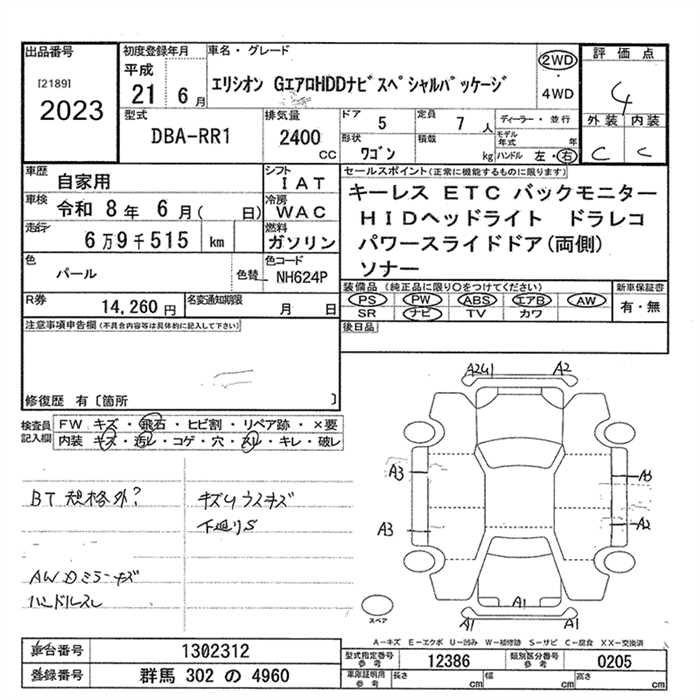 出品番号
[2189]
2023
初度登録年月
平成
21 6 月
車名・グレード
エリシオン GエアロHDDナビスペシャルパッケージ
2WD
・
4WD
評価点
4
外装 内装
C C
型式
DBA-RR1
排気量
2400
CC
ドア 5
定員 7 人
ディーラー・並行
形状 ワゴン
積載 kg
モデル年式 年
ハンドル 左・右
車歴 自家用
車検 令和 8 年 6 月( 日)
走行 6万9千515 km
色 パール 色替
シフト IAT
冷房 WAC
燃料 ガソリン
色コード NH624P
セールスポイント(正常に機能するものに限ります)
キーレス ETC バックモニター
HIDヘッドライト ドラレコ
パワースライドドア(両側)
ソナー
R券 14,260 円
名変通知期限 月 日
装備品 (純正品に限り○をつけてください)
PS PW ABS エアB AW
SR ナビ TV カワ
新車保証書
有・無
後日品
注意事項申告欄(不具合内容等は具体的に記入して下さい)
修復歴 有〔箇所 〕
検査員記入欄
FW キズ・飛石・ヒビ割・リペア跡・×要
内装 キズ・汚レ・コゲ・穴・スリ・キレ・破レ
BT 規格外?
キズUウスキズ
下廻りS
AWDミラーキズ
ハンドルスレ
A2U1 A2
A3 A3
A3 A2
A1
A1 A1
スペア
A−キズ E−エクボ U−凹み W−補修跡 S−サビ C−腐食 XX−交換済
車台番号 1302312
登録番号 群馬 302 の 4960
型式指定番号 参考 12386
類別区分番号 参考 0205
車庫証明用 参考 長さ cm 幅 cm 高さ cm